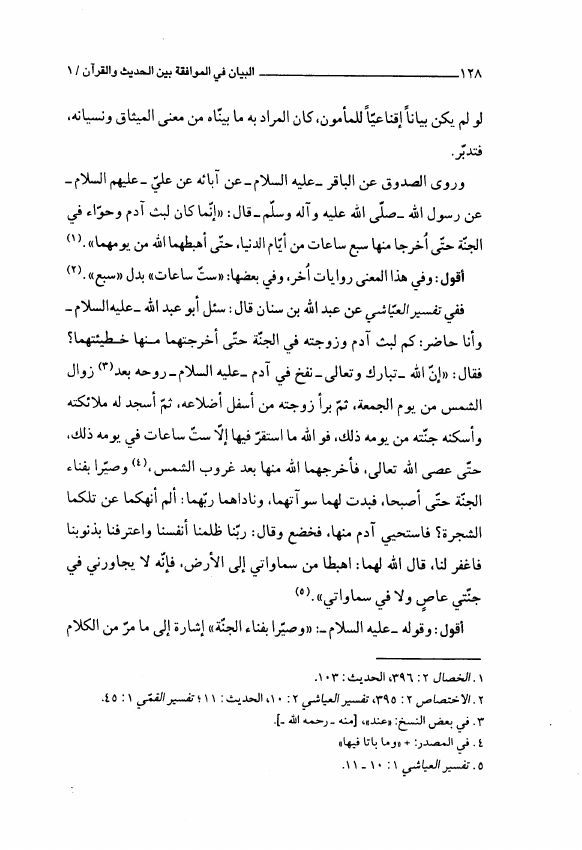 ١٢٨ ـــــــــــــــــــــــــــــــــــــ البيان في الموافقة بين الحديث والقرآن / ١
لو لم يكن بياناً إقناعيّاً للمأمون، كان المراد به ما بيّناه من معنى الميثاق ونسيانه،
فتدبّر.
وروى الصدوق عن الباقر ـ عليه السلام ـ عن آبائه عن عليّ ـ عليهم السلام ـ
عن رسول الله ـ صلّى الله عليه وآله وسلّم ـ قال: «إنّما كان لبث آدم وحوّاء في
الجنّة حتّى أُخرجا منها سبع ساعات من أيّام الدنيا، حتّى أهبطهما الله من يومهما».(١)
أقول: وفي هذا المعنى روايات أُخر، وفي بعضها: «ستّ ساعات» بدل «سبع».(٢)
ففي تفسير العيّاشي عن عبد الله بن سنان قال: سئل أبو عبد الله ـ عليه السلام ـ
وأنا حاضر: كم لبث آدم وزوجته في الجنّة حتّى أخرجتهما منها خطيئتهما؟
فقال: «إنّ الله ـ تبارك وتعالى ـ نفخ في آدم ـ عليه السلام ـ روحه بعد(٣) زوال
الشمس من يوم الجمعة، ثمّ برأ زوجته من أسفل أضلاعه، ثمّ أسجد له ملائكته
وأسكنه جنّته من يومه ذلك، فو الله ما استقرّ فيها إلّا ستّ ساعات في يومه ذلك،
حتّى عصى الله تعالى، فأخرجهما الله منها بعد غروب الشمس،(٤) وصيّرا بفناء
الجنّة حتّى أصبحا، فبدت لهما سوآتهما، وناداهما ربّهما: ألم أنهكما عن تلكما
الشجرة؟ فاستحيي آدم منها، فخضع وقال: ربّنا ظلمنا أنفسنا واعترفنا بذنوبنا
فاغفر لنا، قال الله لهما: اهبطا من سماواتي إلى الأرض، فإنّه لا يجاورني في
جنّتي عاصٍ ولا في سماواتي».(٥)
أقول: وقوله ـ عليه السلام ـ: «وصيّرا بفناء الجنّة» إشارة إلى ما مرّ من الكلام
١. الخصال ٢: ٣٩٦، الحديث: ١٠٣.
٢. الاختصاص ٢: ٣٩٥، تفسير العياشي ٢: ١٠، الحديث: ١١؛ تفسير القمّي ١: ٤٥.
٣. في بعض النسخ: «عند»، [منه ـ رحمه الله ـ].
٤. في المصدر: + «وما باتا فيها»
٥. تفسير العياشي ١: ١٠ ـ ١١.